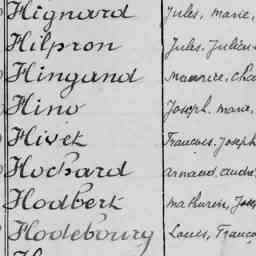 Hignard Jules, marie,
Hilpron Jules, Julien
Hingand Maurice, Cha
Hino Joseph, marie,
Hivet François, Joseph
Hochard armand, andré,
Hodbert mathurin, Jose
Hodebourg Louis, Franço